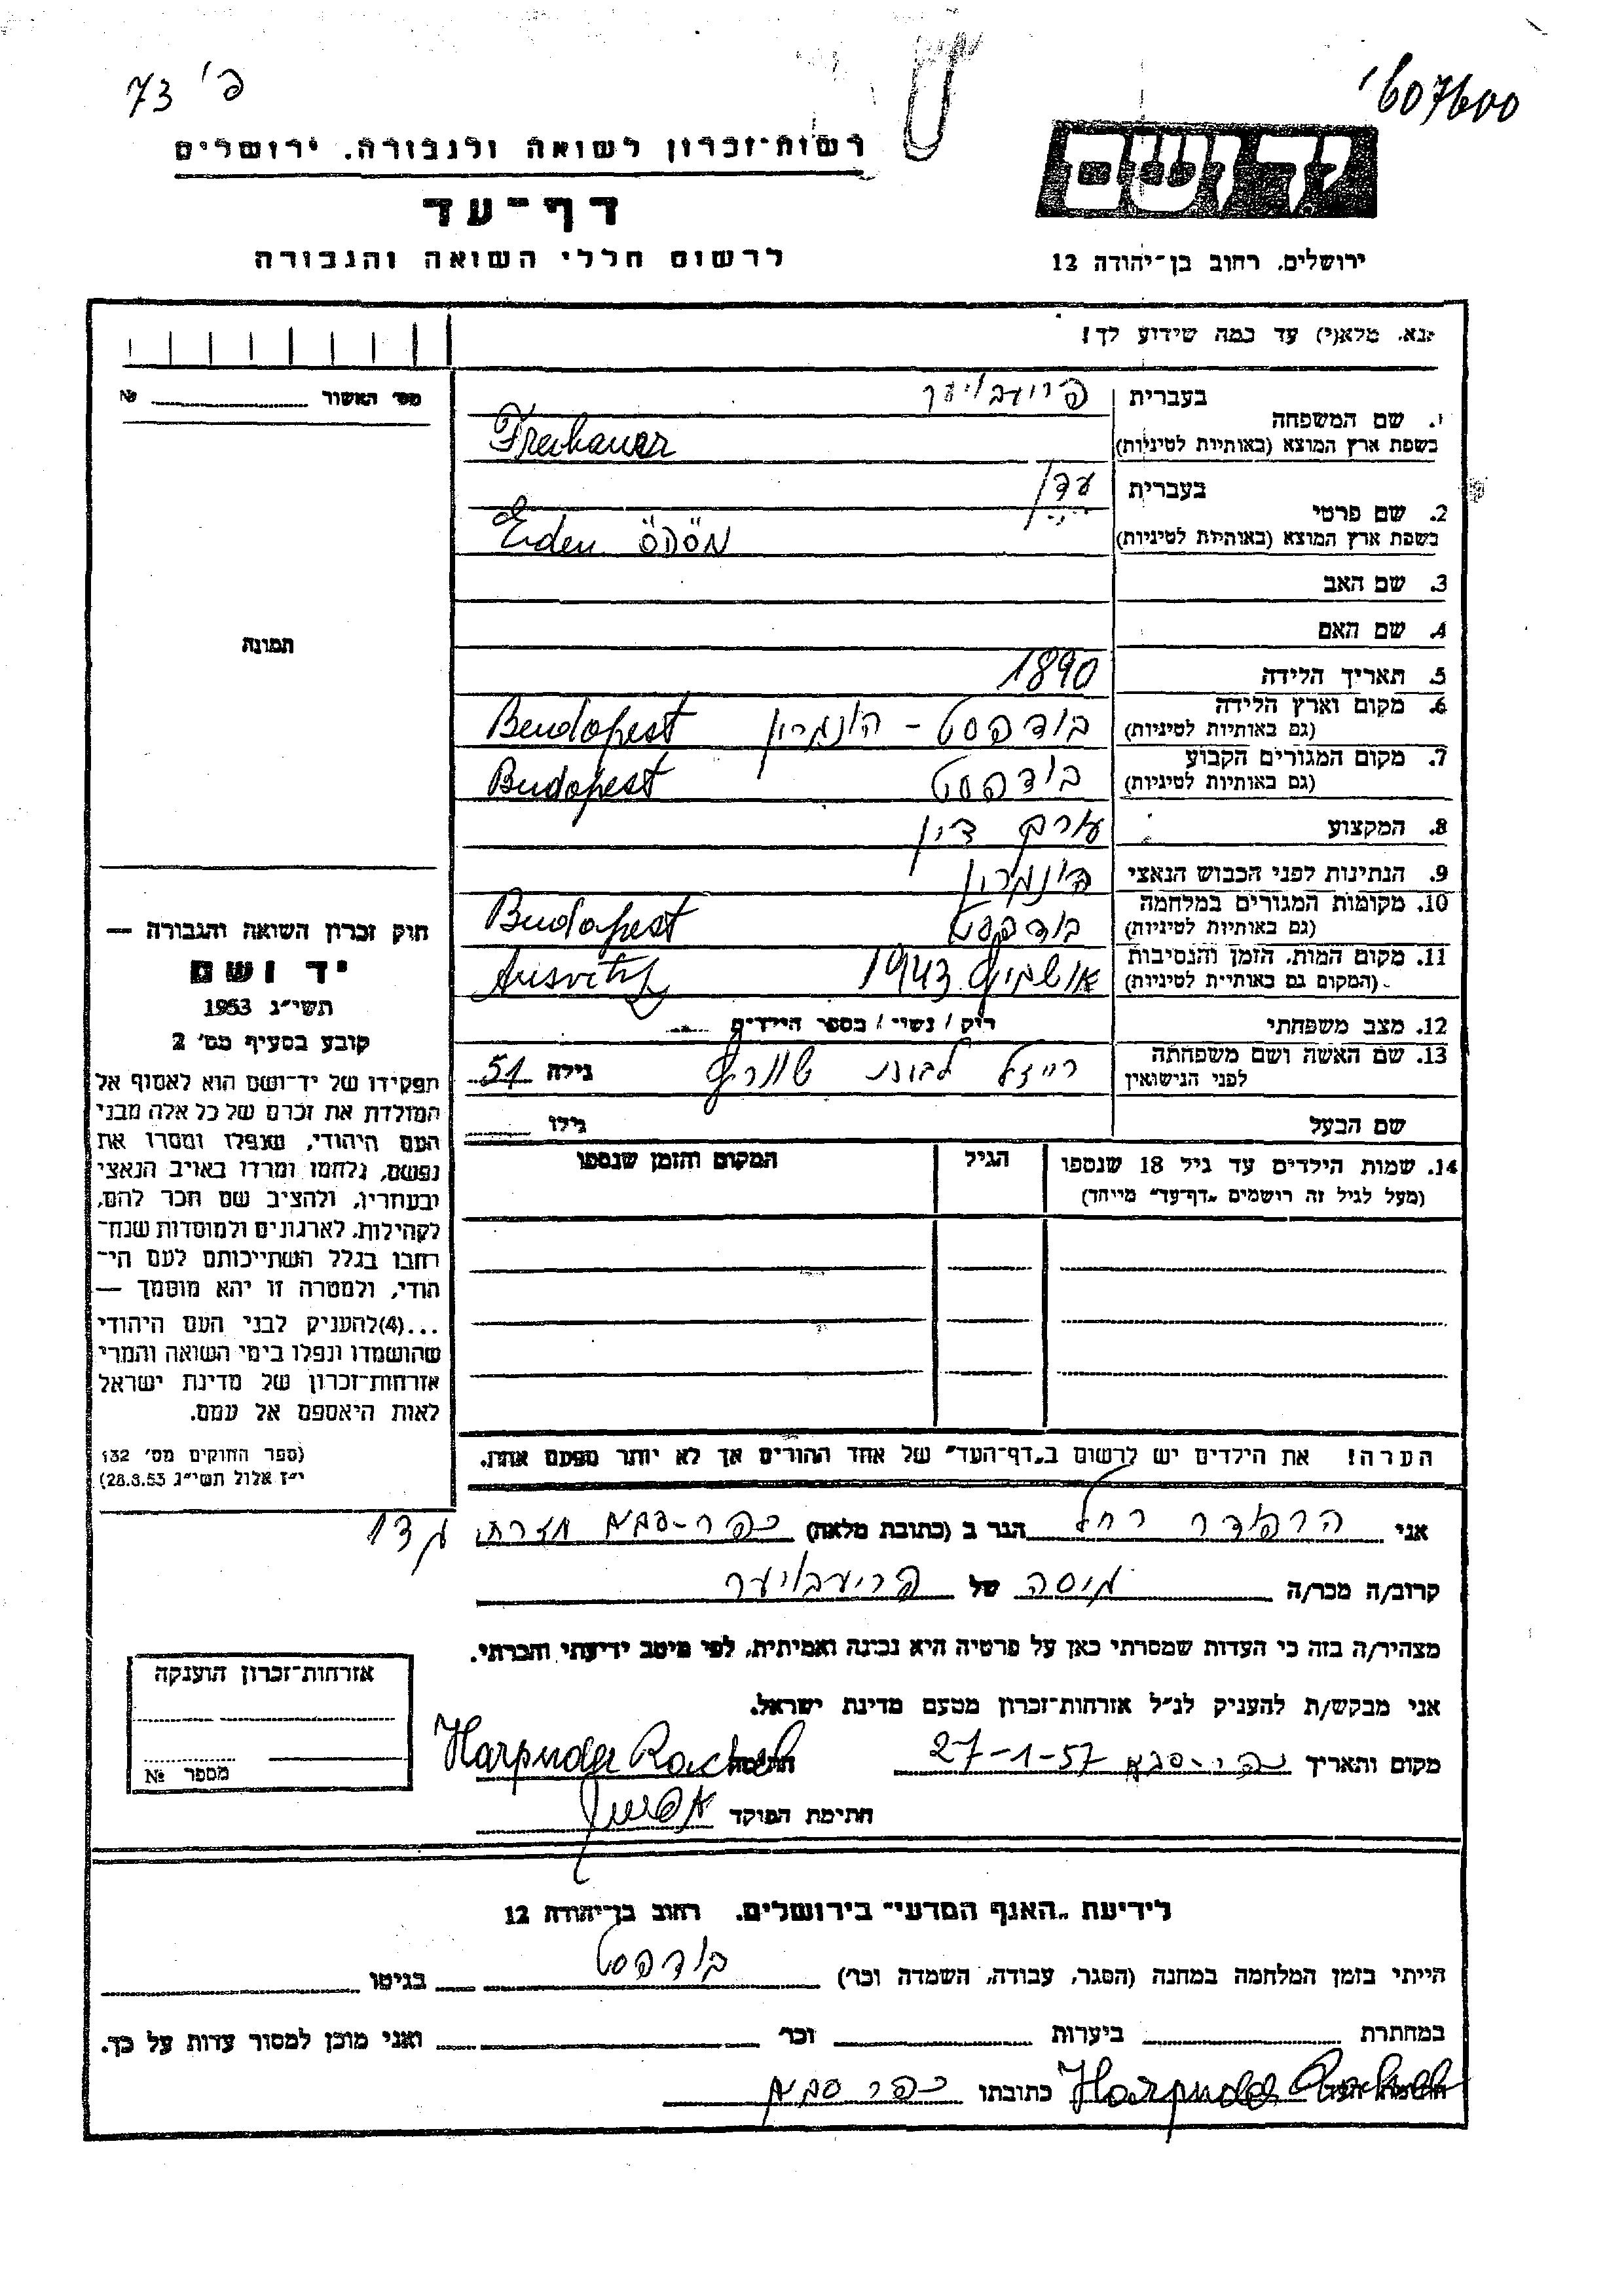 פ' 73
607600
רשות־זכרון לשואה ולגבורה. ירושלים
דף־עד
לרשום חללי השואה והגבורה
ידושם
ירושלים. רחוב בן־יהודה 12
נא. מלא(י) עד כמה שידוע לך!
מס' האשור № 
1. שם המשפחה
בעברית
בשפת ארץ המוצא (באותיות לטיניות)
Freibauer
2. שם פרטי
בעברית עדן
בשפת ארץ המוצא (באותיות לטיניות) Erden ÖDÖN
3. שם האב
4. שם האם
תמונה
5. תאריך הלידה 1890
6. מקום וארץ הלידה
(גם באותיות לטיניות) בודפסט - הונגריה Beudopest
7. מקום המגורים הקבוע
(גם באותיות לטיניות) בודפסט Budopest
8. המקצוע עורך דין
9. הנתינות לפני הכבוש הנאצי
10. מקומות המגורים במלחמה
(גם באותיות לטיניות) בודפסט Budopest
11. מקום המות. הזמן והנסיבות
(המקום גם באותיית לטיניות) אושויץ 1943 Ausvitz
12. מצב משפחתי רוק / נשוי / מספר הילדים
13. שם האשה ושם משפחתה
לפני הנישואין רייזל גילה 51
שם הבעל גילו
14. שמות הילדים עד גיל 18 שנספו
(מעל לגיל זה רושמים „דף־עד” מיוחד)
הגיל
המקום והזמן שנספו
חוק זכרון השואה והגבורה —
יד ושם
תשי״ג 1953
קובע בסעיף מס' 2
תפקידו של יד־ושם הוא לאסוף אל
המולדת את זכרם של כל אלה מבני
העם היהודי, שנפלו ומסרו את
נפשם, נלחמו ומרדו באויב הנאצי
ובעוזריו, ולהציב שם וזכר להם,
לקהילות, לארגונים ולמוסדות שנח־
רבו בגלל השתייכותם לעם הי־
הודי, ולמטרה זו יהא מוסמך —
...(4)להעניק לבני העם היהודי
שהושמדו ונפלו בימי השואה והמרי
אזרחות־זכרון של מדינת ישראל
לאות היאספם אל עמם.
(ספר החוקים מס' 132
י״ז אלול תשי״ג 28.8.53)
הערה! את הילדים יש לרשום ב„דף־העד” של אחד ההורים אך לא יותר מפעם אחת.
אני הרפודר רחל הגר ב (כתובת מלאה) כפר-סבא
קרוב/ה מכר/ה גיסה של
מצהיר/ה בזה כי העדות שמסרתי כאן על פרטיה היא נכונה ואמיתית, לפי מיטב ידיעתי והכרתי.
אני מבקש/ת להעניק לנ״ל אזרחות־זכרון מטעם מדינת ישראל.
מקום ותאריך כפר-סבא 27-1-57 חתימה Harpuder Rachel
חתימת הפוקד
אזרחות־זכרון הוענקה
מספר №
לידיעת „האגף המדעי” בירושלים. רחוב בן־יהודה 12
הייתי בזמן המלחמה במחנה (הסגר, עבודה, השמדה וכו') בודפסט בגיטו
במחתרת ביערות וכו' ואני מוכן למסור עדות על כך.
Harpuder Rachel כתובתו כפר סבא